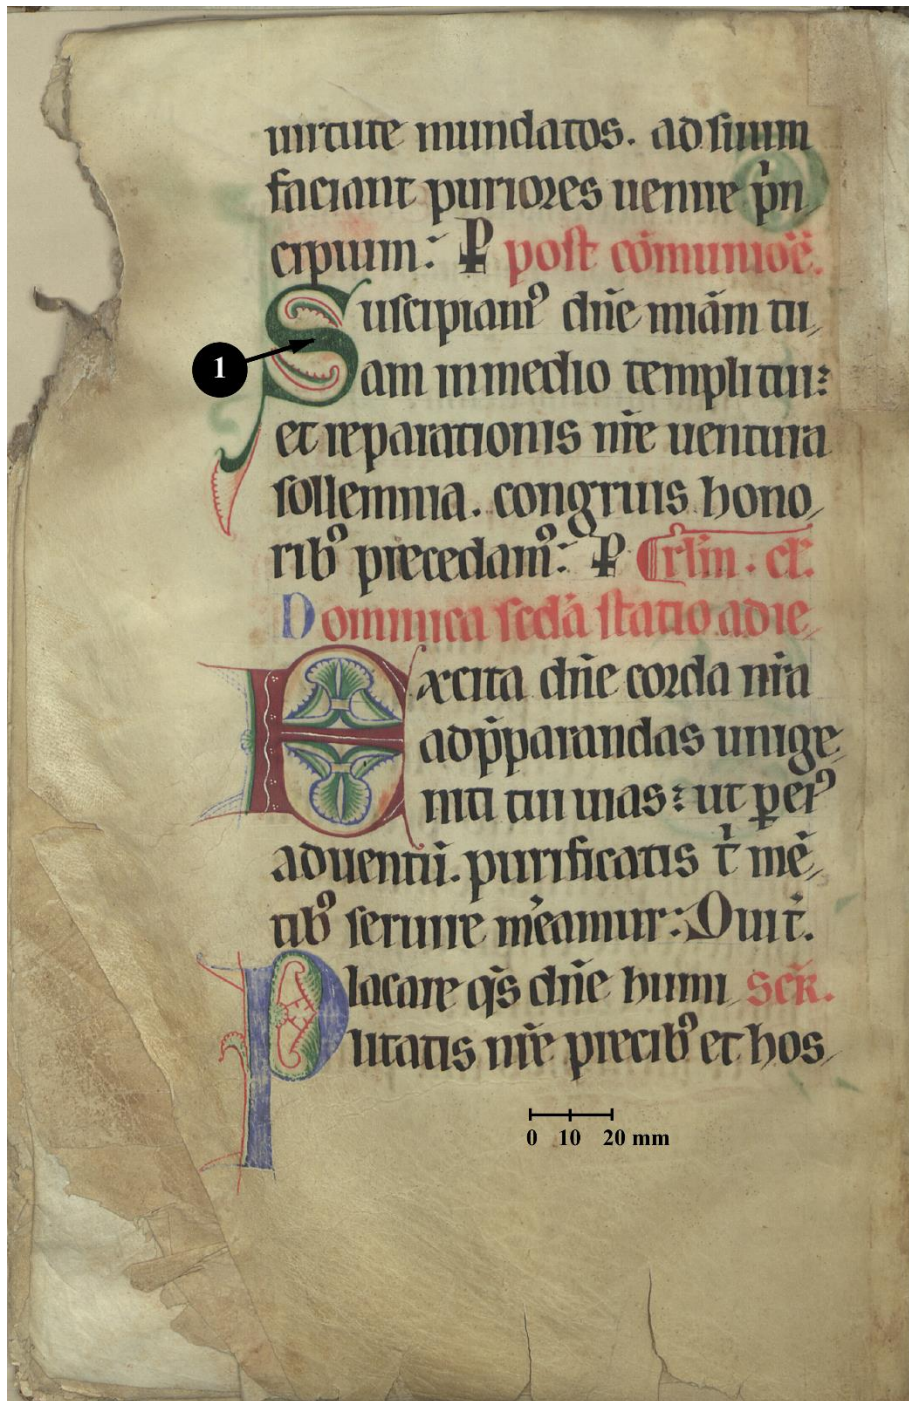 uirtute mundatos. ad suum
faciant puriores uenire p̍n
cipium: ꝑ post cōmunioē.
Suscipiamꝰ dn̄e mīam tu
am in medio templi tui:
et reparationis nr̄e uentura
sollemnia. congruis hono
ribꝰ precedamꝰ: ꝑ
Dominica sctā̄ statio ad ie
Excita dn̄e corda nr̄a
ad p̄parandas unige
niti tui uias: ut ꝑ eiꝰ
aduentū. purificatis t̍ mē
tibꝰ seruire m̄eamur: Qui t̄.
Placare qs̄ dn̄e humi scr̄.
litatis nr̄e precibꝰ et hos
1
0 10 20 mm